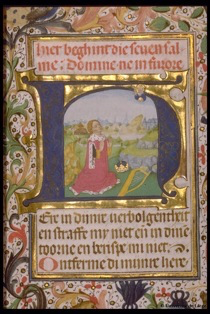 hier beghint die seuen sal
me: Domine ne in furore
HEre in dinre uerbolgentheit
en straffe my niet en in dine
toorne en berispe mi niet.
Ontferme di minre here